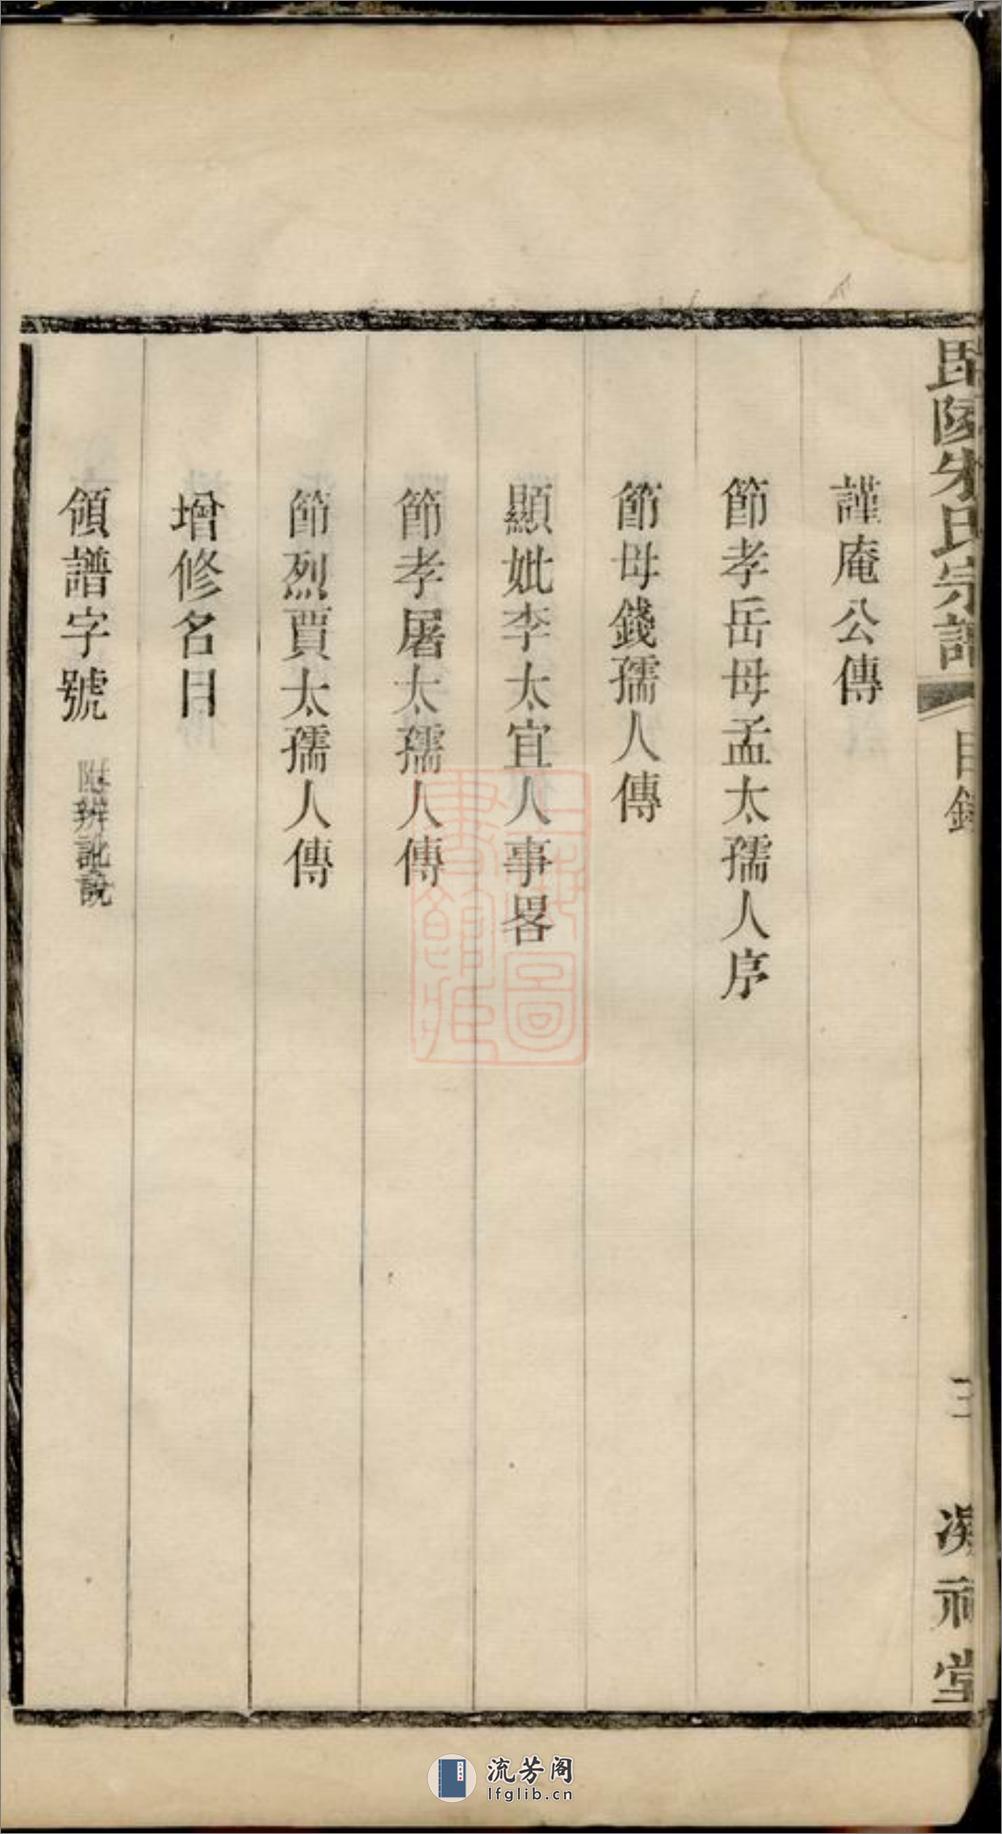 毘陵朱氏宗譜 目錄 三 凝祉堂
謹庵公傳
節孝岳母孟太孺人序
節母錢孺人傳
顯妣李太宜人事畧
節孝屠太孺人傳
節烈賈太孺人傳
增修名目
領譜字號 附辨訛說
上海圖書館藏
流芳阁
lfglib.cn